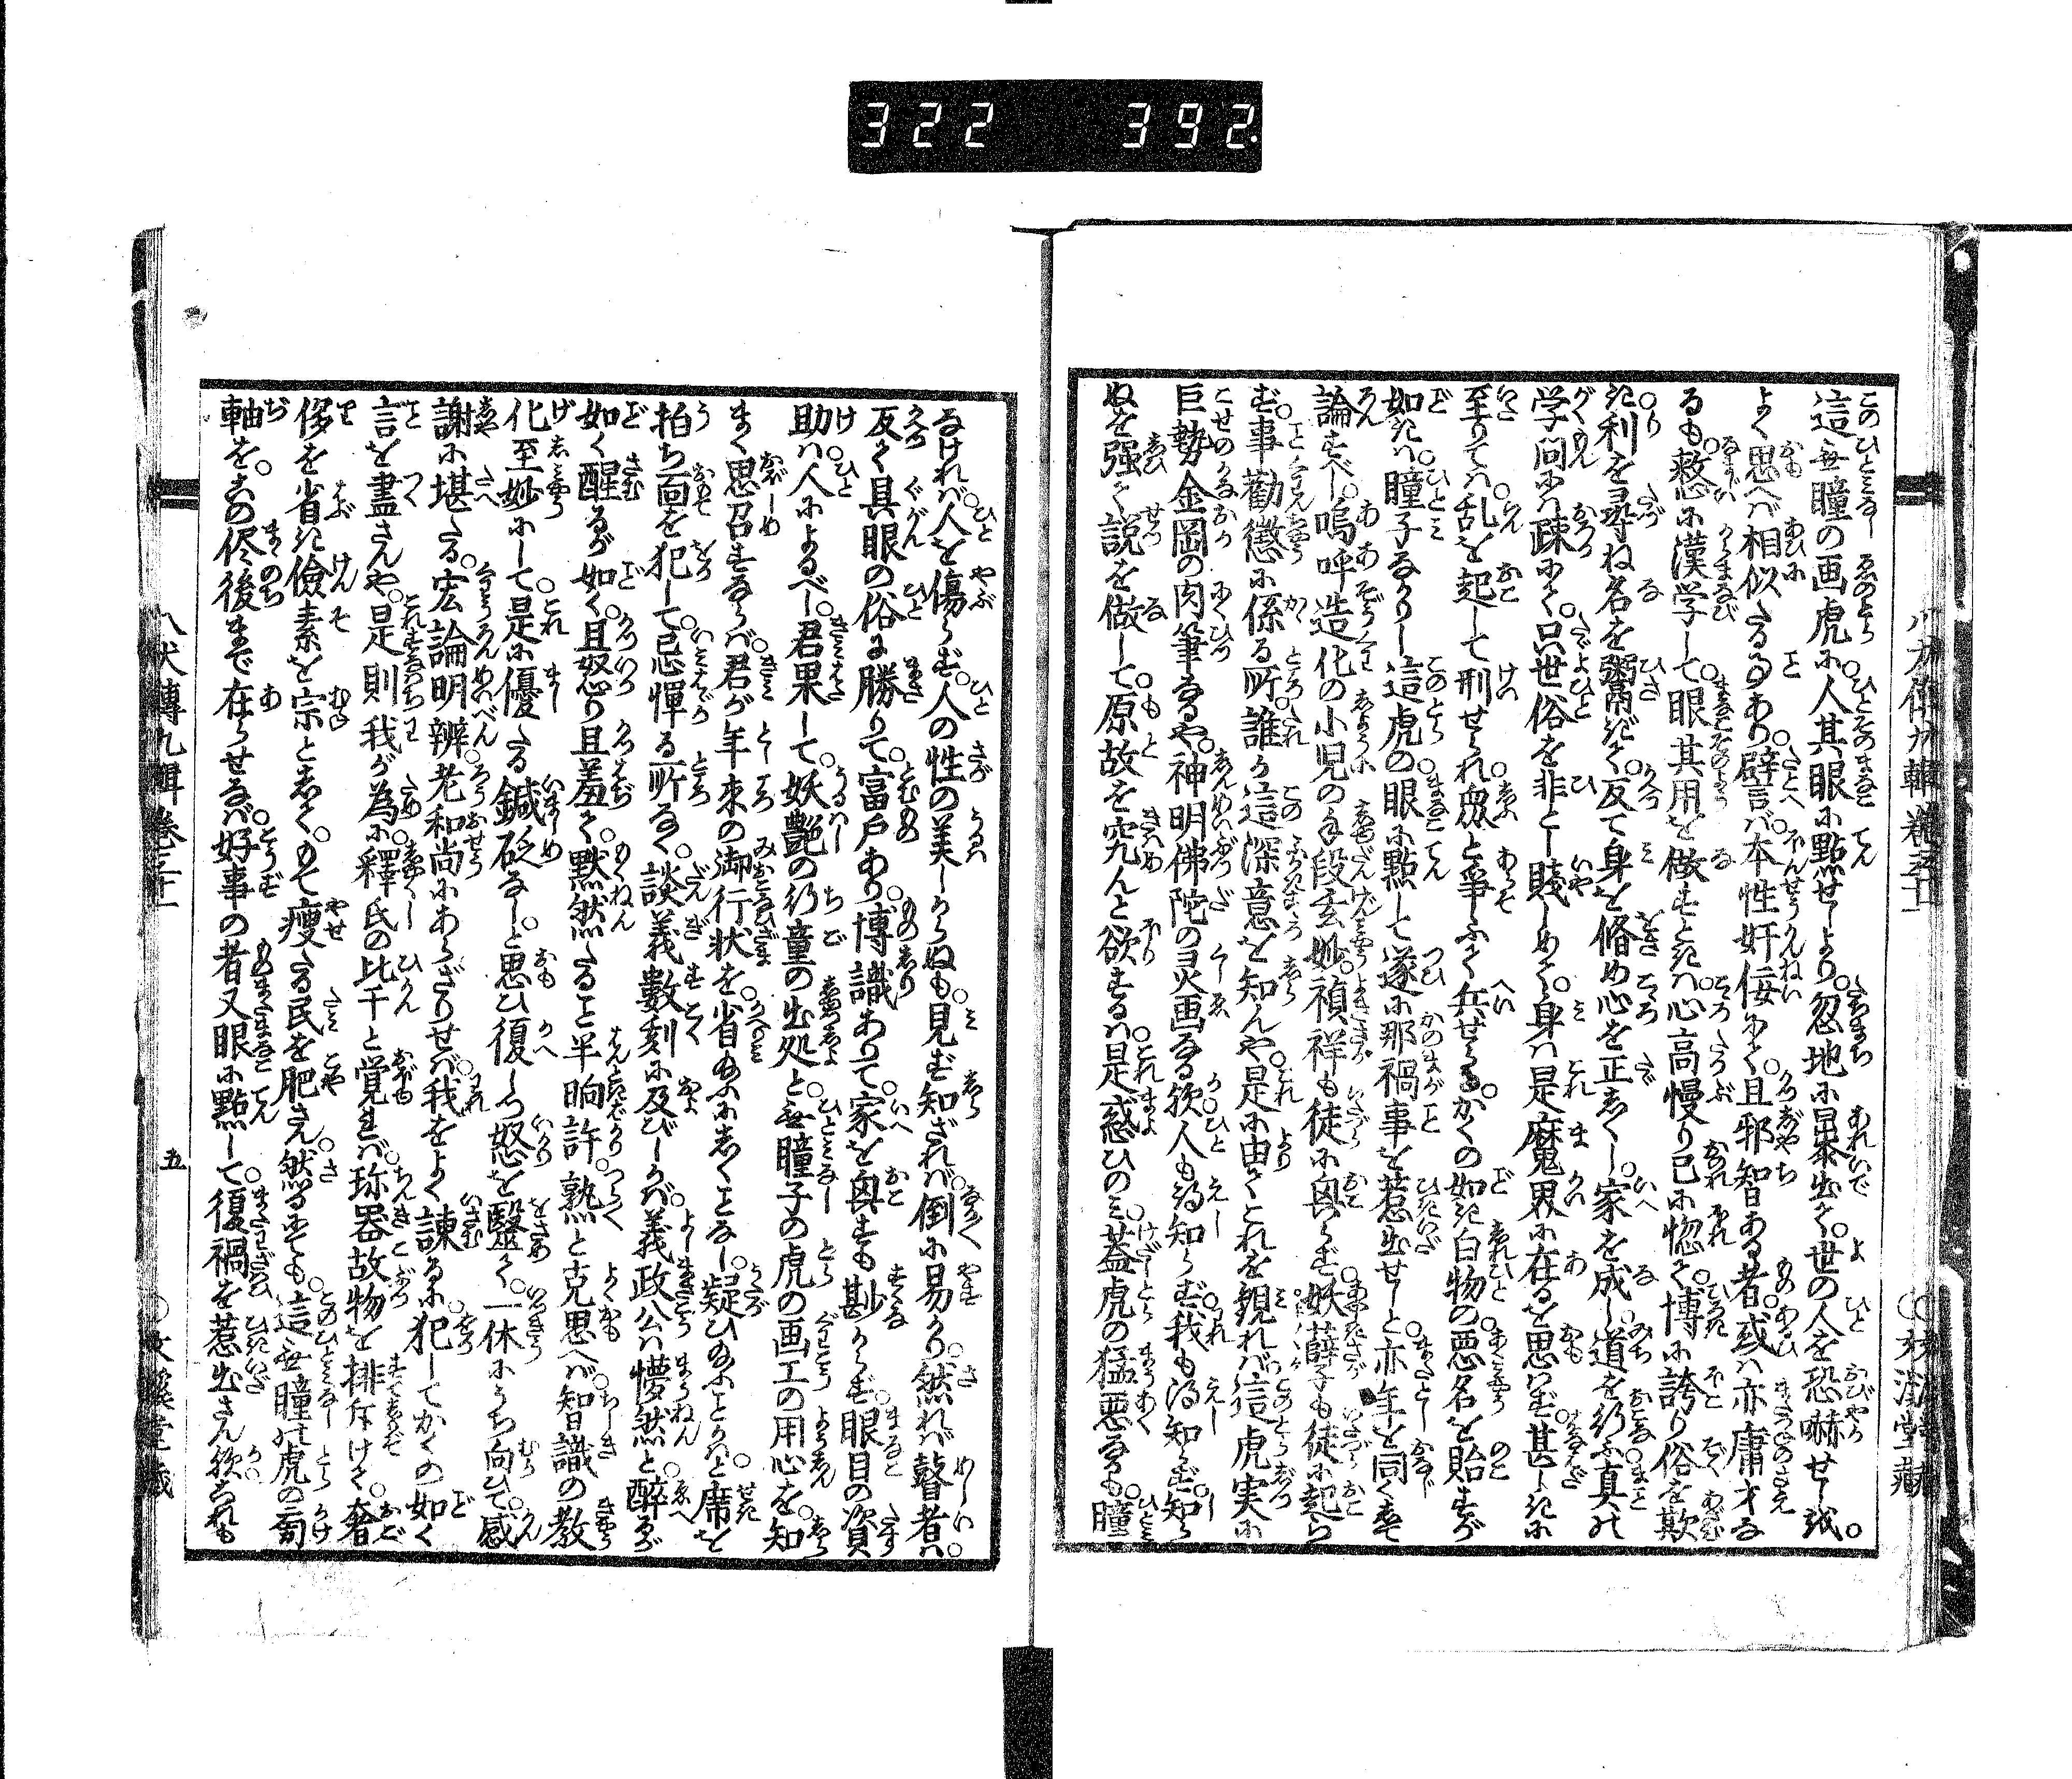 322 392.
這無瞳の画虎に人其眼に點せしより。忽地に暴出て。世の人を恐嚇せし哉。
よく思へば相似たる事あり。譬言ば本性奸佞にて。且邪智ある者。或は亦庸才な
るも。憖に漢学して。眼其用を做すときは。心高慢り己に惚て。博に誇り俗を欺
き。利を尋ね名を鬻ぎて。反て身を脩め心を正しくし。家を成し。道を行ふ真の
学問には疎にて。只世俗を非とし賤しめて。身は是魔界に在るを思はず。甚しきに
至りては。乱を起して刑せられ。衆と爭ふて兵せらる。かくの如き白物の悪名を貽すが
如きは。瞳子なかりし這虎の眼に點して。遂に那禍事を惹出せしと。亦年を同くして
論ずべし。嗚呼造化の小児の手段玄妙。禎祥も徒に與らず。妖孽も徒に起ら
ず。事勸懲に係る所。誰か這深意を知んや。是に由てこれを観れば。這虎実に
巨勢金岡の肉筆なるや。神明佛陀の灵画なる歟。人も得知らず。我も得知らず。知ら
ぬを强て説を做して。原故を究んと欲するは。是惑ひのみ。蓋虎の猛悪なるも。瞳
なければ。人を傷らず。人の性の美しからぬも。見ず知ざれば。倒に易かり。然れば瞽者は。
反て具眼の俗に勝りて。富戸あり。博識ありて。家を興すも尠からず。眼目の資
助は。人によるべし。君果して。妖艶の行童の出処と。無瞳子の虎の画工の用心を。知
まく思召すならば。君が年来の御行状を。省給ふにしくことなし。疑ひ給ふことかはと。席を
拍ち面を犯して。忌憚る所なく。談義數刻に及びしかば。義政公は懵然と。醉るが
如く醒るが如く。且怒り且羞て。默然たること半晌許。熟と克思へば。智識の教
化至妙にして。是に優たる鍼砭なし。と思ひ復しつ怒を鑿て。一休にうち向ひて。感
謝に堪たる。宏論明辨。老和尚にあらざりせば。我をよく諫るに。犯してかくの如く
言を盡さんや。是則我が為に。釋氏の比干と覚れば。珎器故物を排斥けて。奢
侈を省き儉素を宗としく。もて痩たる民を肥さん。然るにても。這無瞳の虎の画
軸を。その侭後まで在らせなば。好事の者又眼に點して。復禍を惹出さん歟。これも
八犬傳九輯卷三十一
五
文溪堂藏